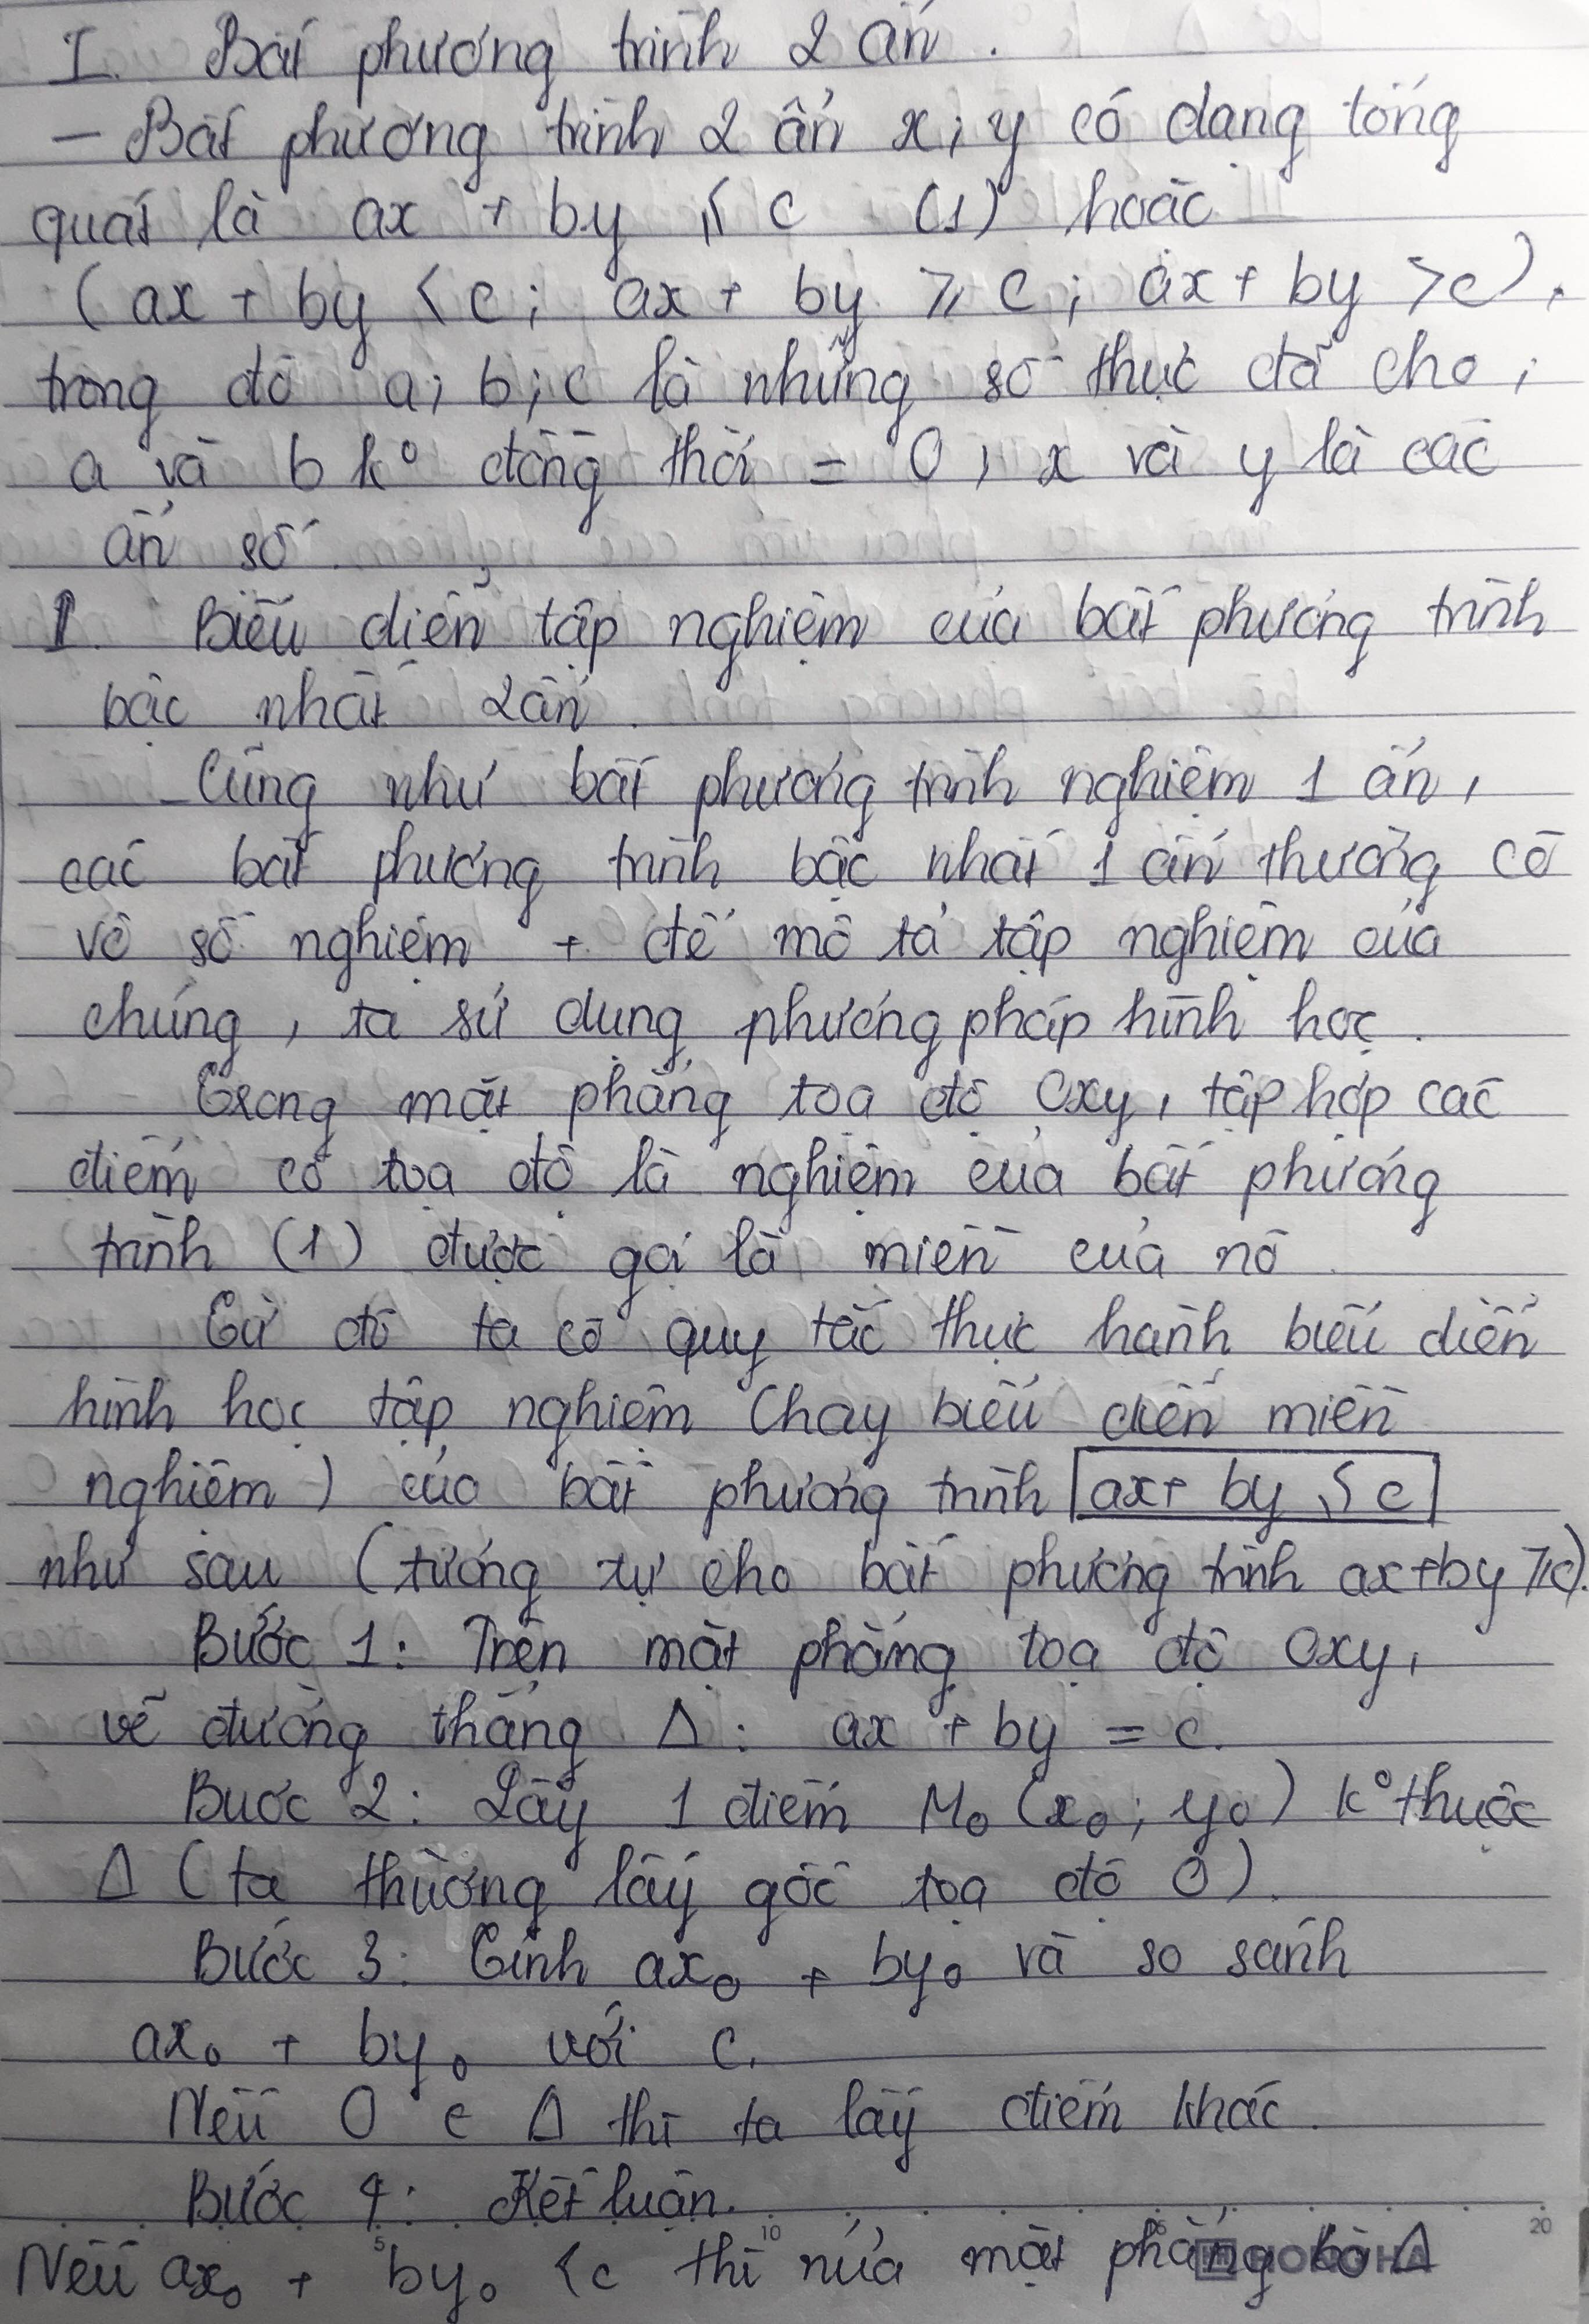 I. Bất phương trình 2 ẩn.
- Bất phương trình 2 ẩn x; y có dạng tổng
quát là ax + by ≤ c (1) hoặc
(ax + by < c; ax + by ≥ c; ax + by > c).
trong đó a; b; c là những số thực đã cho;
a và b k° đồng thời = 0, x và y là các
ẩn số.
II. Biểu diễn tập nghiệm của bất phương trình
bậc nhất 2 ẩn.
- Cũng như bất phương trình nghiệm 1 ẩn,
các bất phương trình bậc nhất 1 ẩn thường có
vô số nghiệm + để mô tả tập nghiệm của
chúng, ta sử dụng phương pháp hình học.
Trong mặt phẳng toạ độ Oxy, tập hợp các
điểm có toạ độ là nghiệm của bất phương
trình (1) được gọi là miền của nó.
Từ đó ta có quy tắc thực hành biểu diễn
hình học tập nghiệm (hay biểu diễn miền
nghiệm) của bất phương trình ax + by ≤ c
như sau (tương tự cho bất phương trình ax + by ≥ c).
Bước 1: Trên mặt phẳng toạ độ Oxy,
vẽ đường thẳng Δ: ax + by = c.
Buơc 2: Lấy 1 điểm M₀ (x₀; y₀) k° thuộc
Δ (ta thường lấy gốc toạ độ O).
Bước 3: Tính ax₀ + by₀ và so sánh
ax₀ + by₀ với c.
Nếu O ∈ Δ thì ta lấy điểm khác.
Bước 4: Kết luận.
5 10 15 20
Nếu ax₀ + by₀ < c thì nửa mặt phẳng bờ Δ